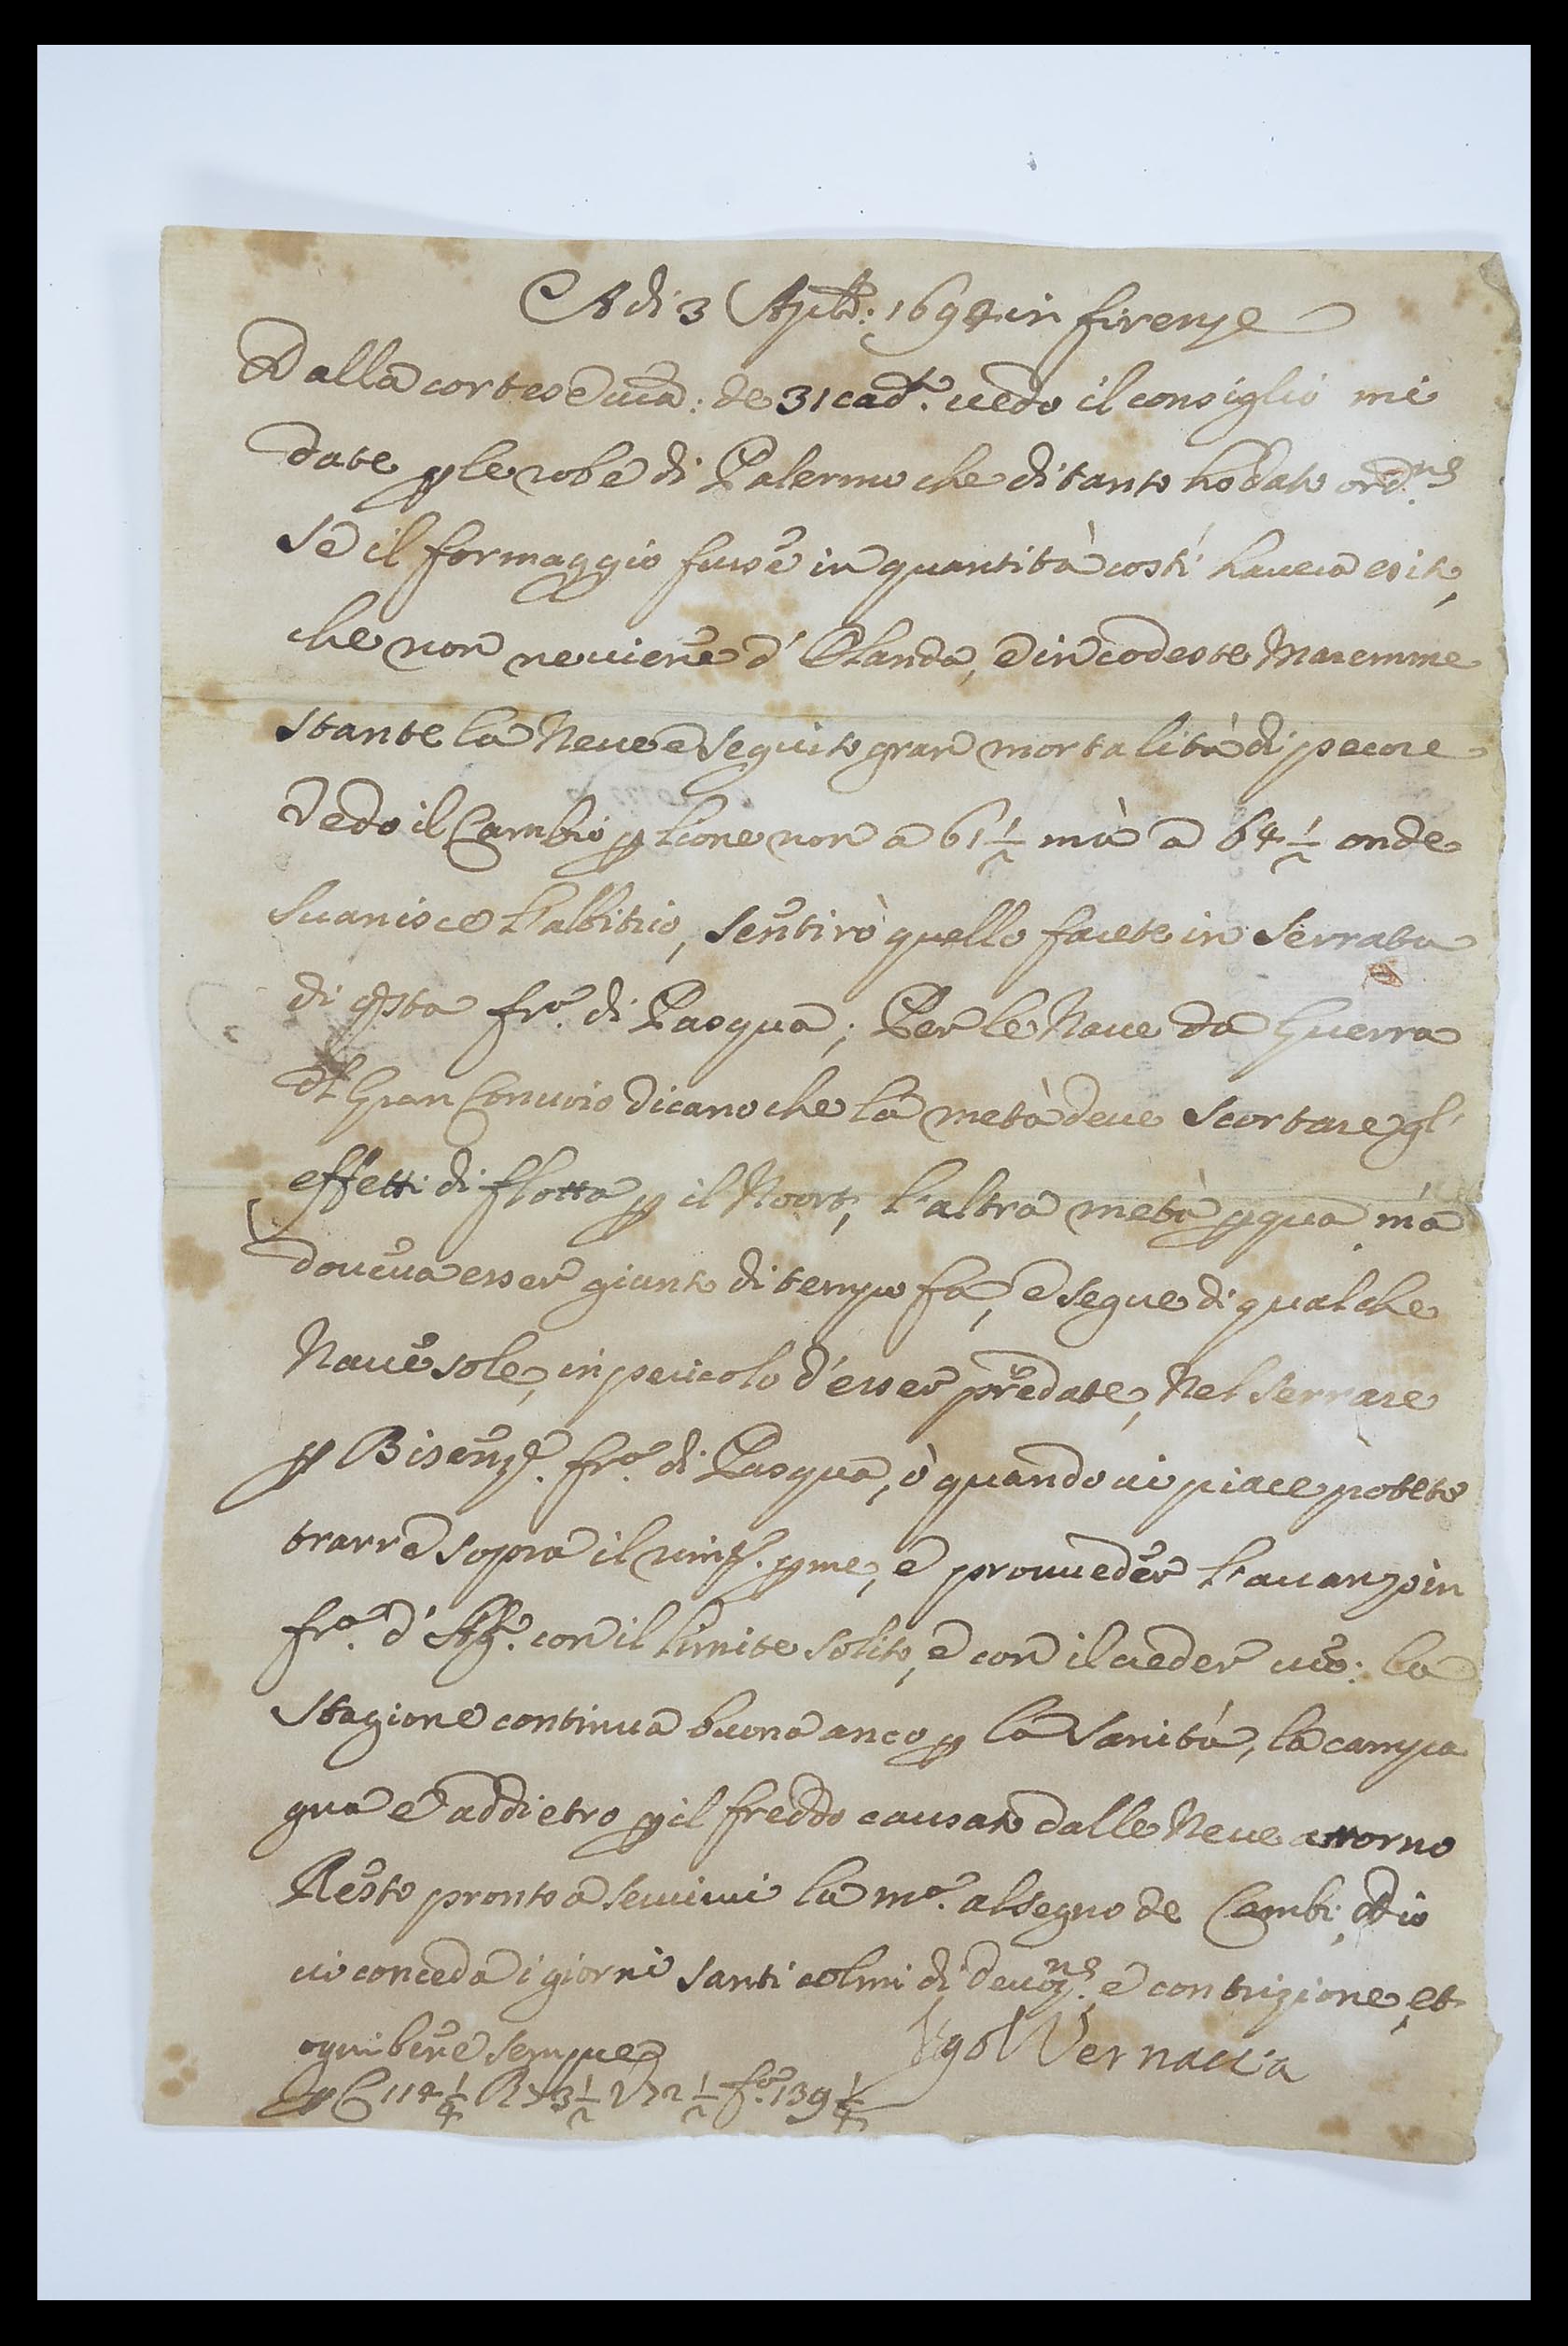 Adi 3 Aple: 1694 in firenze
Dalla cortese vra: de 31 cadte. uedo il consiglio mi
date p le robe di Palermo che di tanto ho dato ord.ne
Se il formaggio fusse in quantità costì haueria esito,
che non ne uiene d'Olanda, e in codeste Maremme
stante la Neue è seguito gran mortalità di pecore
Vedo il Cambio p lione non a 61 1/2 mà a 64 1/2 onde
suanisce l'albitrio, sentirò quello facete in serrata
di qsta fra. di Pasqua; Per le Naue da Guerra
dl Gran Conuoio dicano che la metà deue scortare gl'
effetti di flotta p il Noort, l'altra metà p qua mà
doueua esser giunto di tempo fa, e segue di qualche
Naue sole, in pericolo d'esser predate, Nel serrare
p Bisenze. fra. di Pasqua, ò quando ui piace potete
trarre sopra il p me, e prouueder l'auanzo in
fra. d' con il limite solito, e con il ueder uro: la
Stagione continua buona anco p la Sanità, la campa
gna è addietro p il freddo causato dalle Neue attorno
Resto pronto a seruirui la mo. al segno de Cambi, Iddio
ui conceda i giorni santi colmi di deuoz.ne e contrizione, et
ogni bene sempre
Ugo Vernaccia
p 114 1/4 B 73 1/2 V 72 1/2 fo. 139 1/4